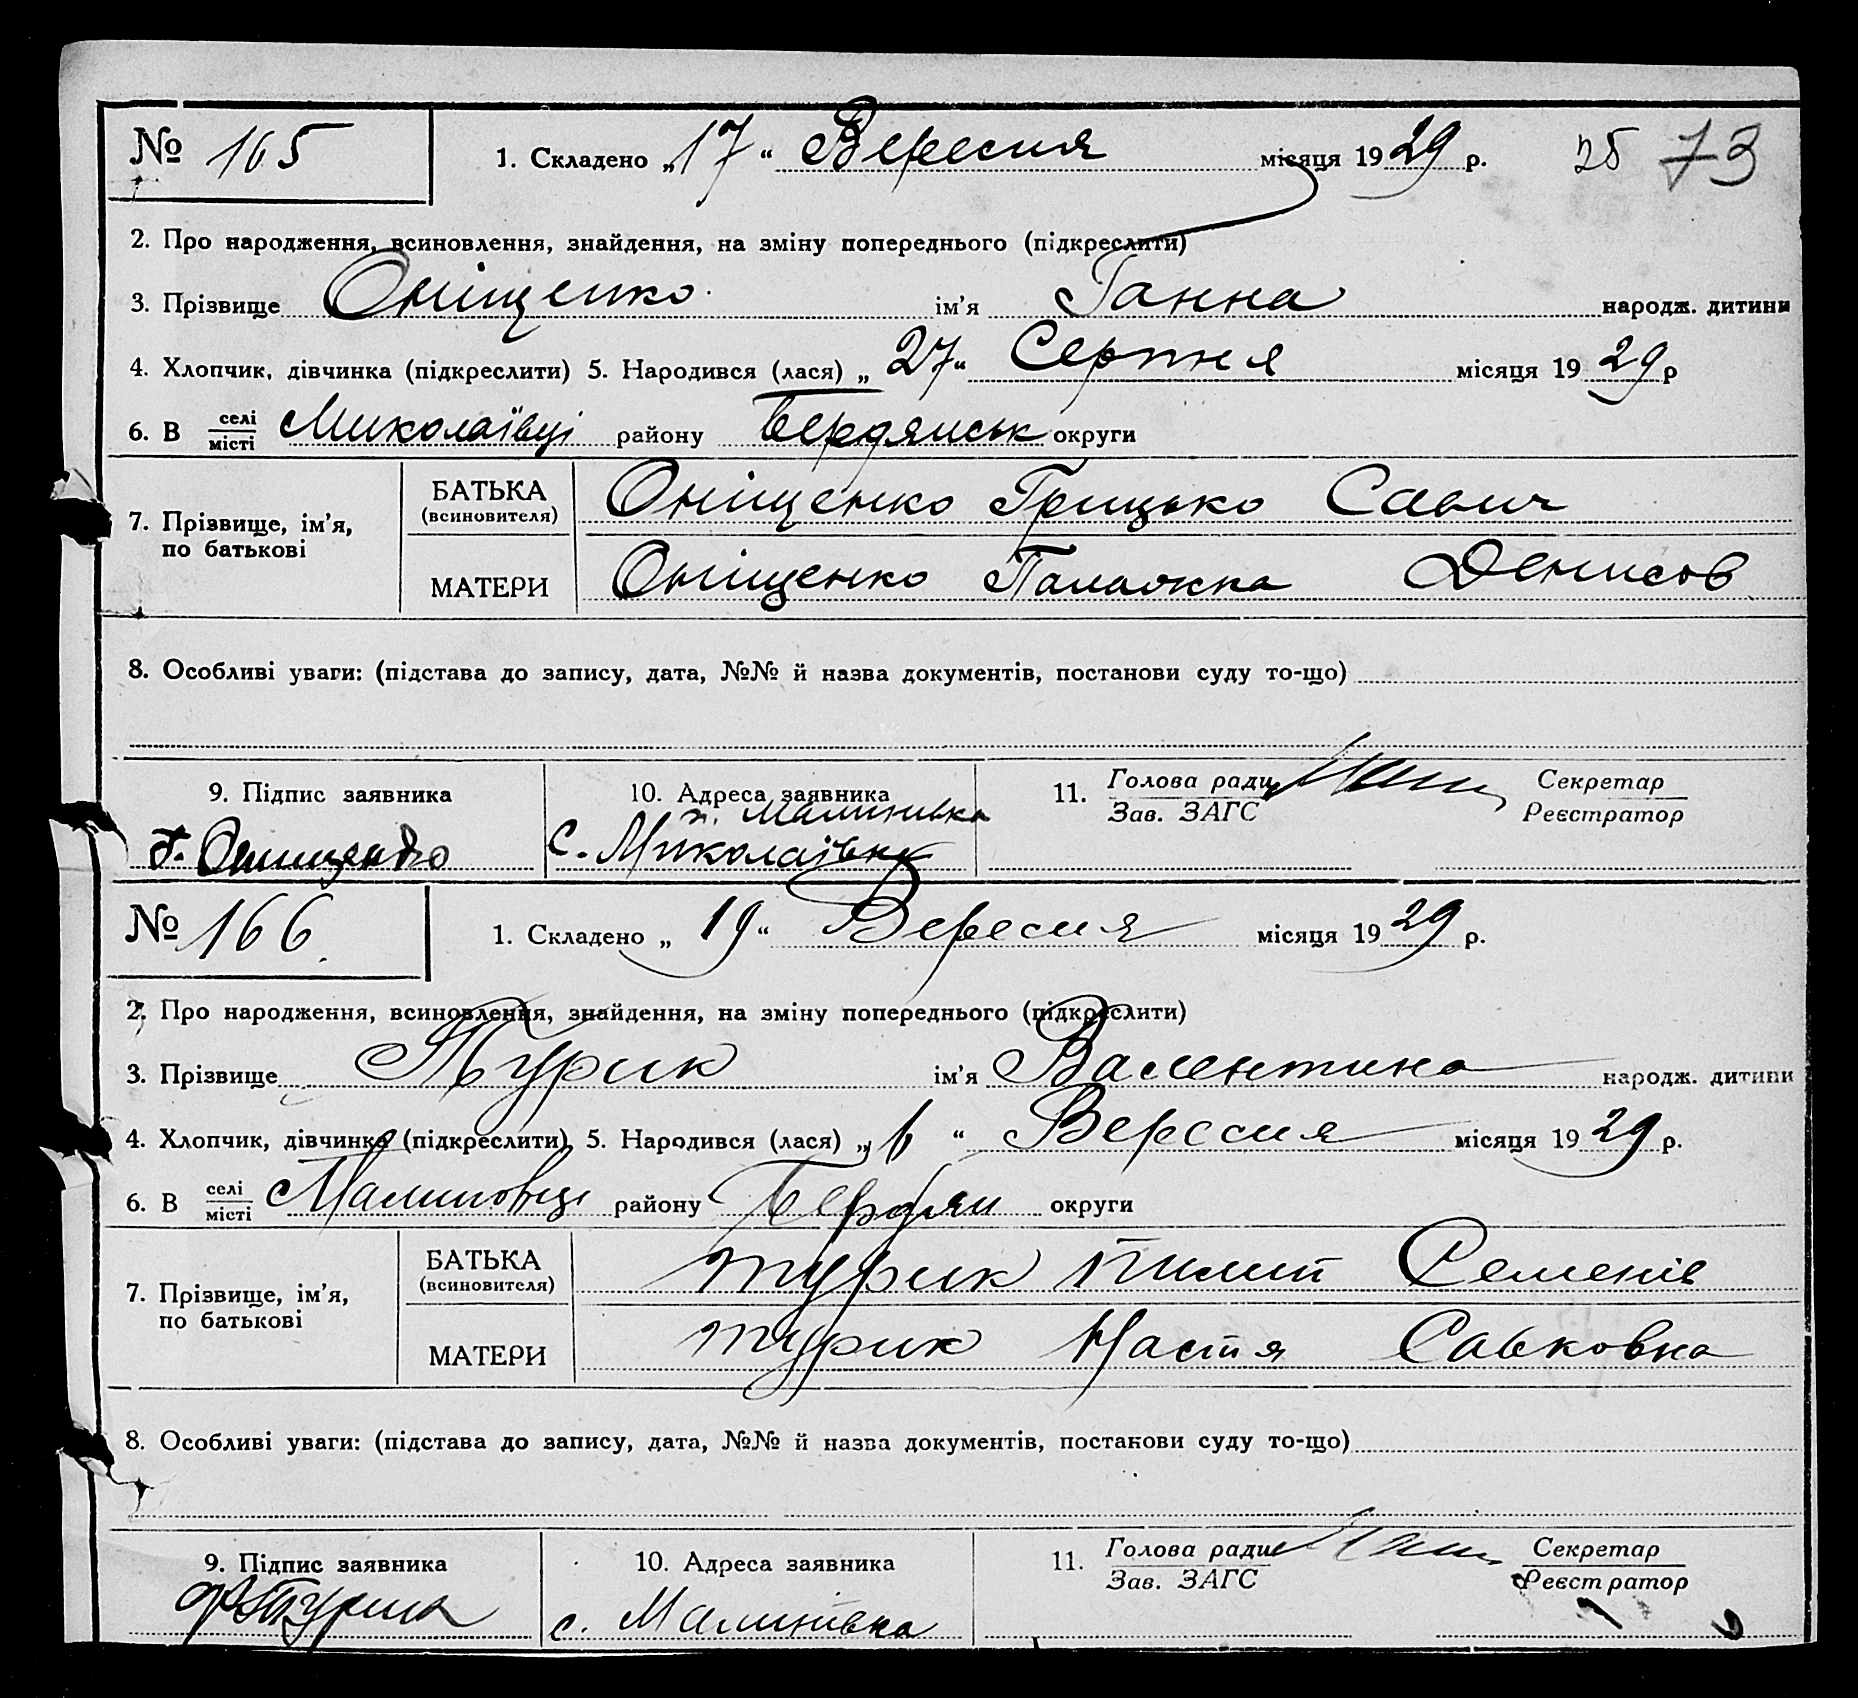 № 165 1. Складено „17“ Вересня місяця 1929 р. 25 73
2. Про народження, всиновлення, знайдення, на зміну попереднього (підкреслити)
3. Прізвище Оніщенко ім’я Ганна народж. дитини
4. Хлопчик, дівчинка (підкреслити) 5. Народився (лася) „27“ Серпня місяця 1929 р
6. В селі місті Миколаївці району Бердянськ округи
7. Прізвище, ім’я, по батькові
БАТЬКА (всиновителя) Оніщенко Грицько Савич
МАТЕРИ Оніщенко Палажка Денисов
8. Особливі уваги: (підстава до запису, дата, №№ й назва документів, постанови суду то-що)
9. Підпис заявника 10. Адреса заявника 11. Голова ради Зав. ЗАГС Секретар Реєстратор
Малинівка
Г. Онищенко с. Миколаївка
№ 166 1. Складено „19“ Вересня місяця 1929 р.
2. Про народження, всиновлення, знайдення, на зміну попереднього (підкреслити)
3. Прізвище Турик ім’я Валентина народж. дитини
4. Хлопчик, дівчинка (підкреслити) 5. Народився (лася) „6“ Вересня місяця 1929 р.
6. В селі місті Малиновці району Бердян округи
7. Прізвище, ім’я, по батькові
БАТЬКА (всиновителя) Турик Пилип Семенів
МАТЕРИ Турик Настя Савковна
8. Особливі уваги: (підстава до запису, дата, №№ й назва документів, постанови суду то-що)
9. Підпис заявника 10. Адреса заявника 11. Голова ради Зав. ЗАГС Секретар Реєстратор
Турик с. Малинівка